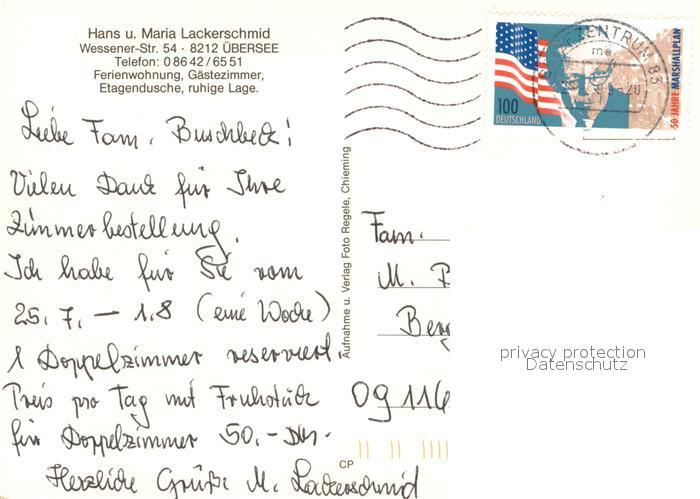 Hans u. Maria Lackerschmid
Wessener-Str. 54 · 8212 ÜBERSEE
Telefon: 0 86 42 / 65 51
Ferienwohnung, Gästezimmer,
Etagendusche, ruhige Lage.
Liebe Fam. Buschbeck!
Vielen Dank für Ihre
Zimmerbestellung.
Ich habe für Sie vom
25. 7. – 1.8 (eine Woche)
1 Doppelzimmer reserviert.
Preis pro Tag mit Frühstück
für Doppelzimmer 50.- DM.
Herzliche Grüße M. Lackerschmid
Aufnahme u. Verlag Foto Regele, Chieming
CP
100
DEUTSCHLAND
50 JAHRE MARSHALLPLAN
ZENTRUM 83
Fam.
M.
09116
privacy protection
Datenschutz